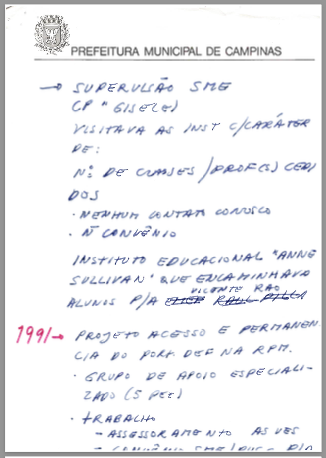 PREFEITURA MUNICIPAL DE CAMPINAS
→ SUPERVISÃO SME
(P " GISELE)
VISITAVA AS INST C/CARÁTER
DE:
Nº DE CLASSES / PROF(S) CEDI
DOS
· NENHUM CONTATO CONOSCO
· Ñ CONVÊNIO
INSTITUTO EDUCACIONAL "ANNE
SULLIVAN" QUE ENCAMINHAVA
VICENTE RAO
ALUNOS P/A
1991→ PROJETO ACESSO E PERMANEN
CIA DO PORT. DEF NA RPM.
· GRUPO DE APOIO ESPECIALI-
ZADO (5 PEE)
· TRABALHO
→ ASSESSORAMENTO AS UES